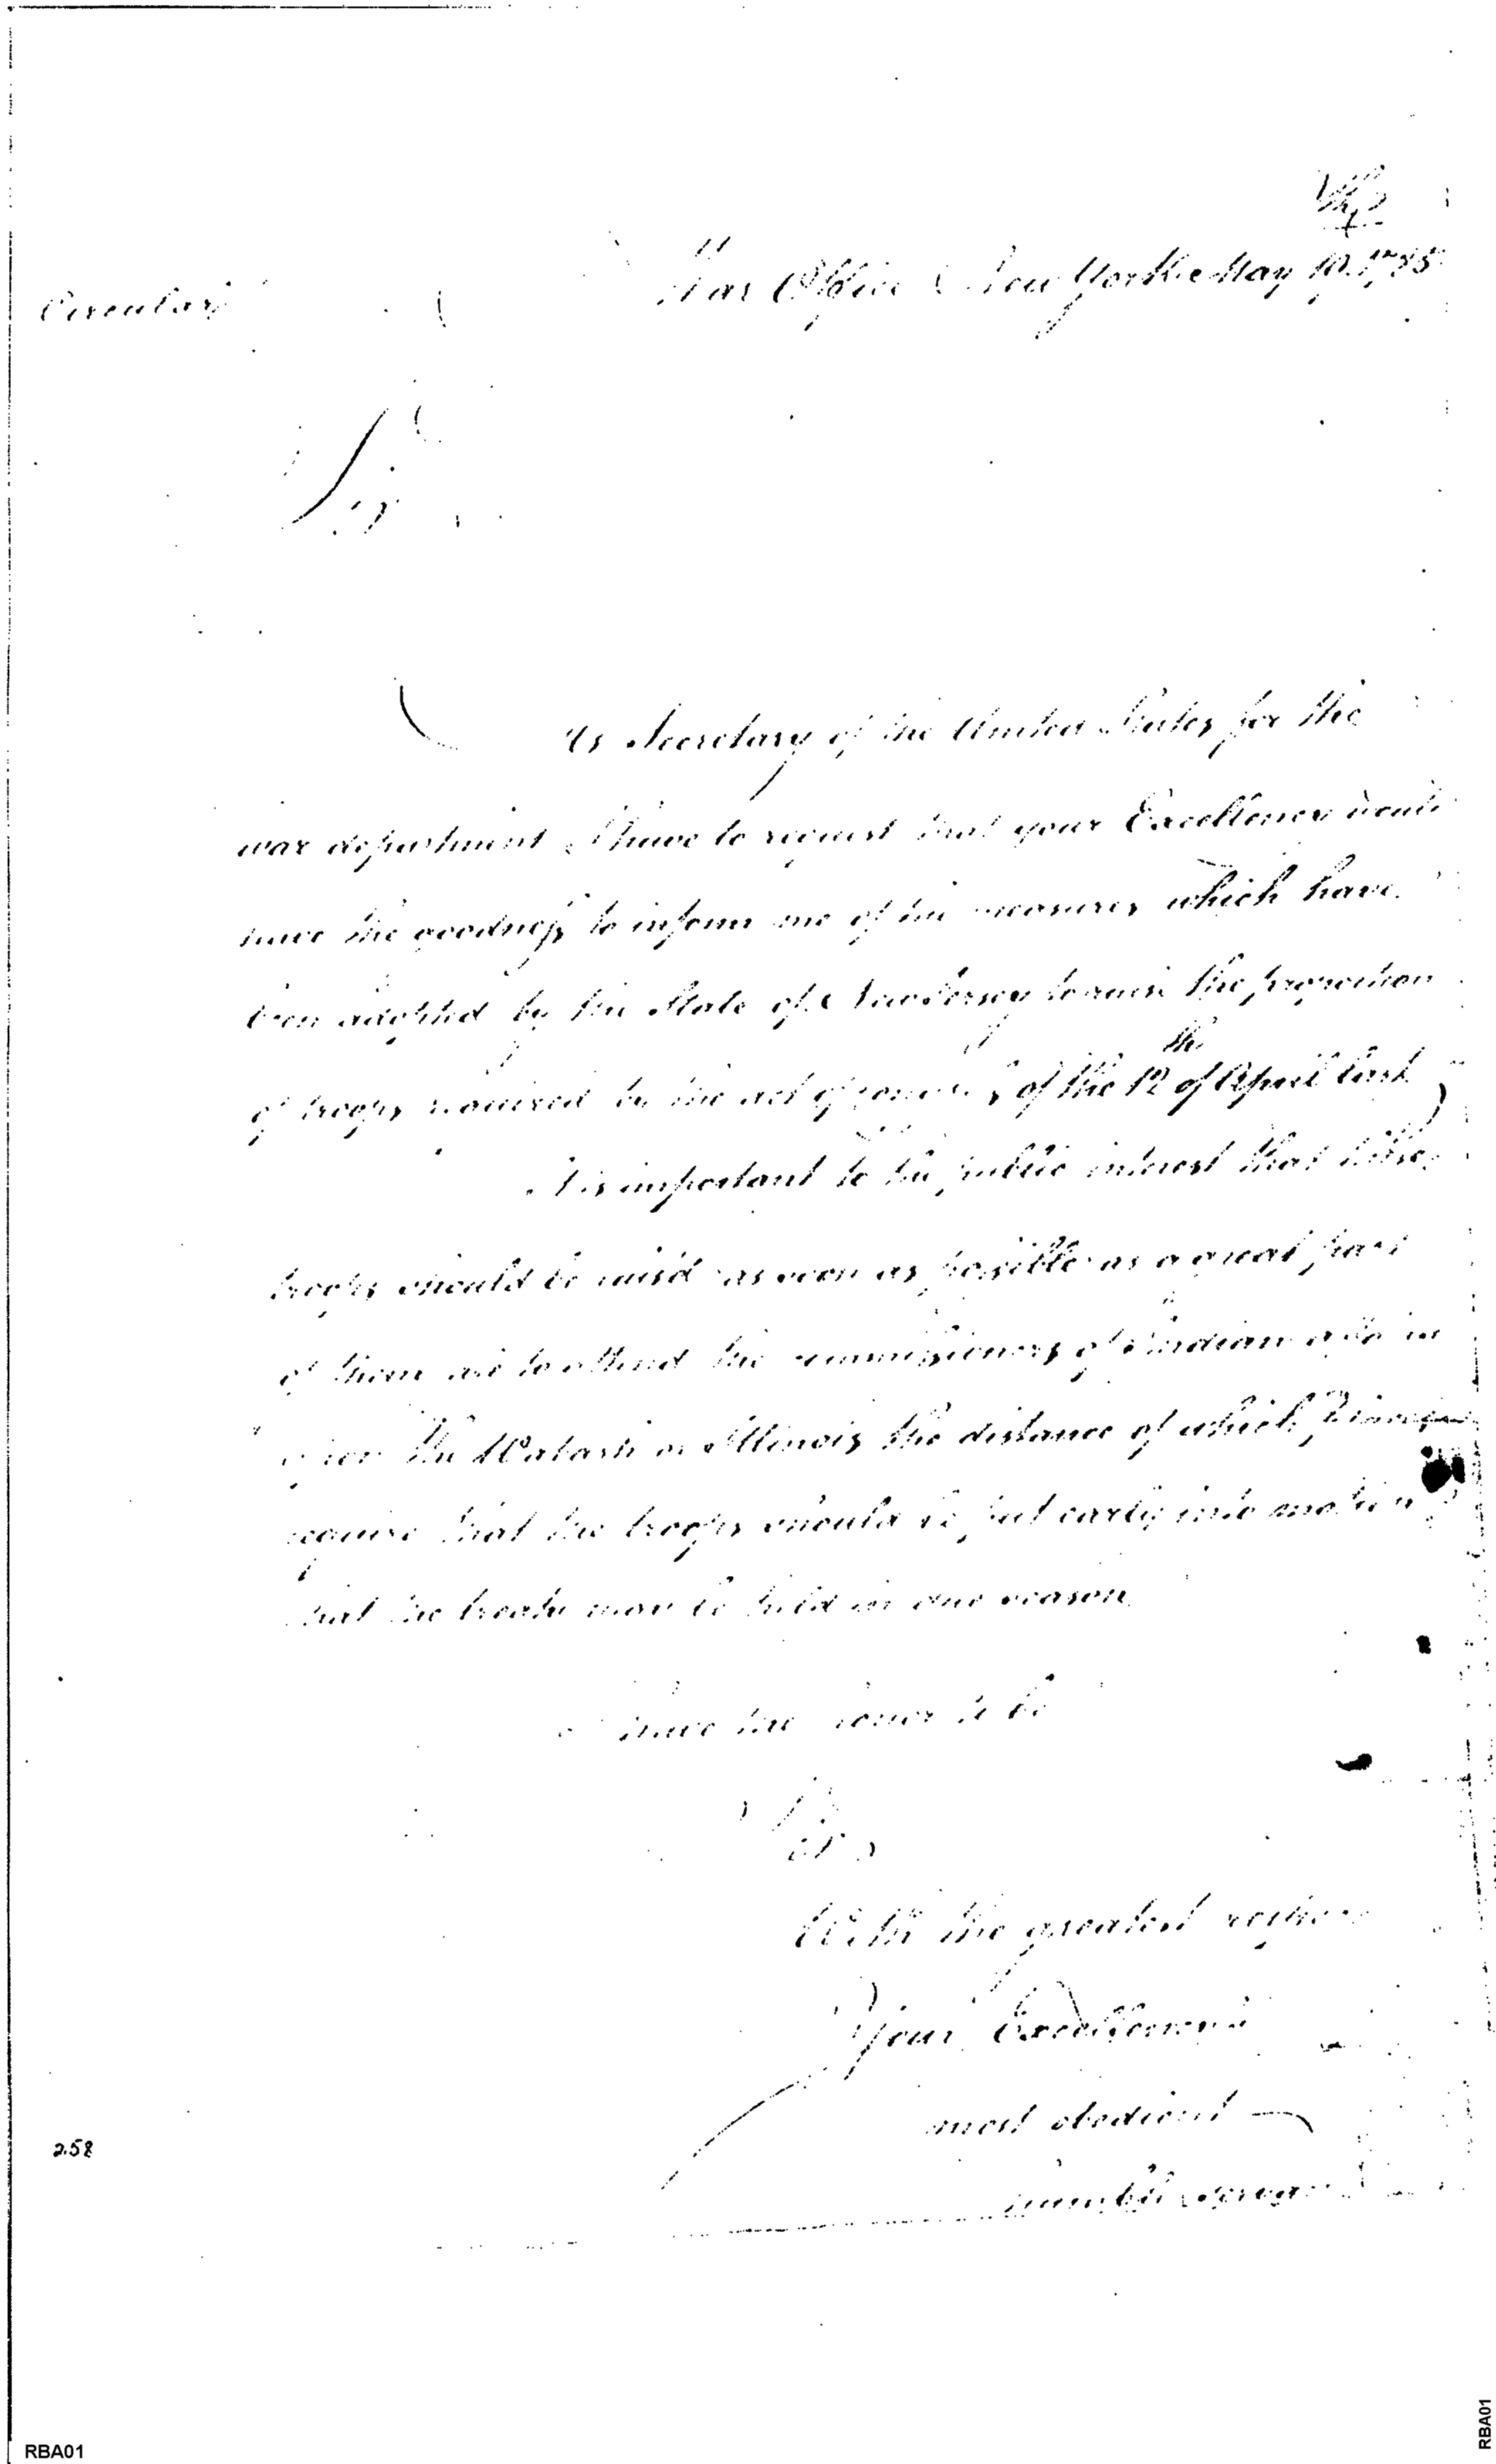 Circular
War Office New York May 10. 1785
Sir
As Secretary of the United States for the
war department I have to request that your Excellency would
have the goodness to inform me of the measures which have
been adopted by the State of New Jersey to raise the proportion
of troops required by the act of congress of the 12th of April last
It is important to the public interest that these
troops should be raised as soon as possible as a great part
of them are to attend the commissioners of Indian
the Wabash or Illinois the distance of which places
require that the troops should be put early into motion
that the treaty may be held in due season
I have the honor to be
Sir
With the greatest respect
Your Excellency's
most obedient
humble servant
258
RBA01
RBA01